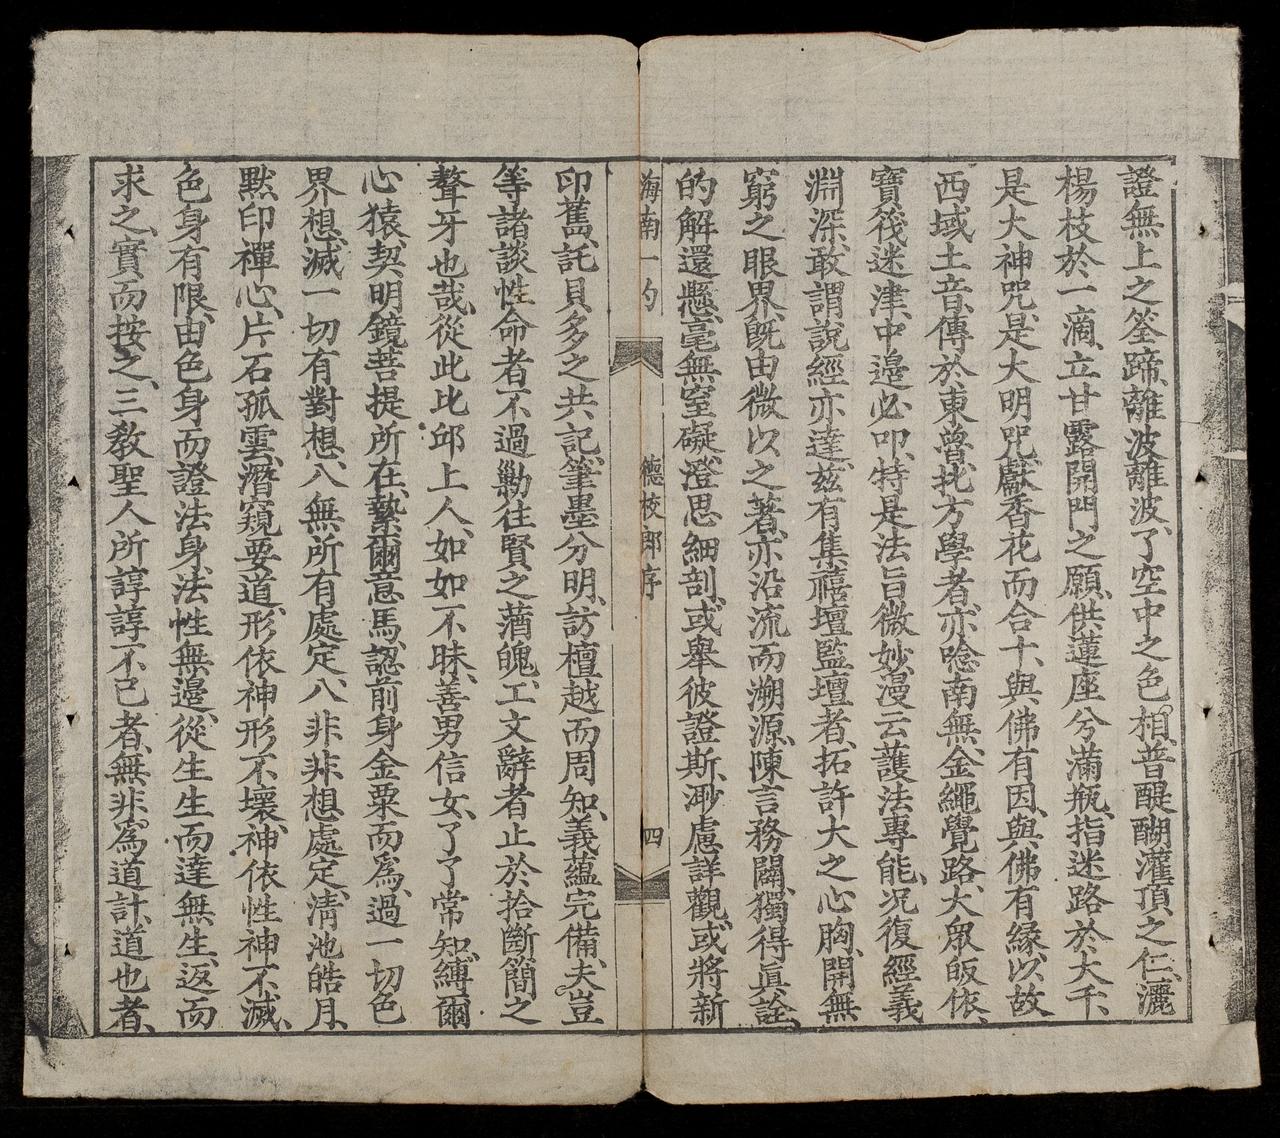 證無上之筌蹄、離波離波、了空中之色相、普醍醐灌頂之仁、灑
楊枝於一滴、立甘露開門之願、供蓮座兮滿瓶、指迷路於大千、
是大神咒、是大明咒、獻香花而合十、與佛有因、與佛有緣、以故
西域土音、傳於東魯、扰方學者、亦唸南無、金繩覺路、大眾皈依、
寶筏迷津、中邊必叩、特是法旨微妙、漫云護法專能、况復經義
淵深、敢謂說經亦達、茲有集禧壇監壇者、拓許大之心胸、開無
窮之眼界、既由微以之著、亦沿流而溯源、陳言務闢、獨得眞詮、
的解還懸、毫無窒礙、澄思細剖、或舉彼證斯、渺慮詳觀、或將新
海南一勺 德校郎序 四
印舊、託貝多之共記、筆墨分明、訪檀越而周知、義蘊完備、夫豈
等諸談性命者、不過勦往賢之蒩魄、工文辭者、止於拾斷簡之
聱牙也哉、從此比邱上人、如如不昧、善男信女、了了常知、縛爾
心猿、契明鏡菩提所在、縶爾意馬、認前身金粟而爲、過一切色
界想、滅一切有對想、入無所有處定、入非非想處定、清池皓月、
默印禪心、片石孤雲、潛窺要道、形依神形不壞、神依性神不滅、
色身有限、由色身而證法身、法性無邊、從生生而達無生、返而
求之、實而按之、三敎聖人所諄諄不已者、無非爲道計、道也者、